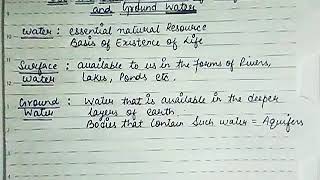 and Ground Water
Water : essential natural Resource
Basis of Existence of Life
Surface : available to us in the forms of Rivers,
Water Lakes, Ponds etc.
Ground : Water that is available in the deeper
Water layers of earth.
Bodies that contain Such water = Aquifers